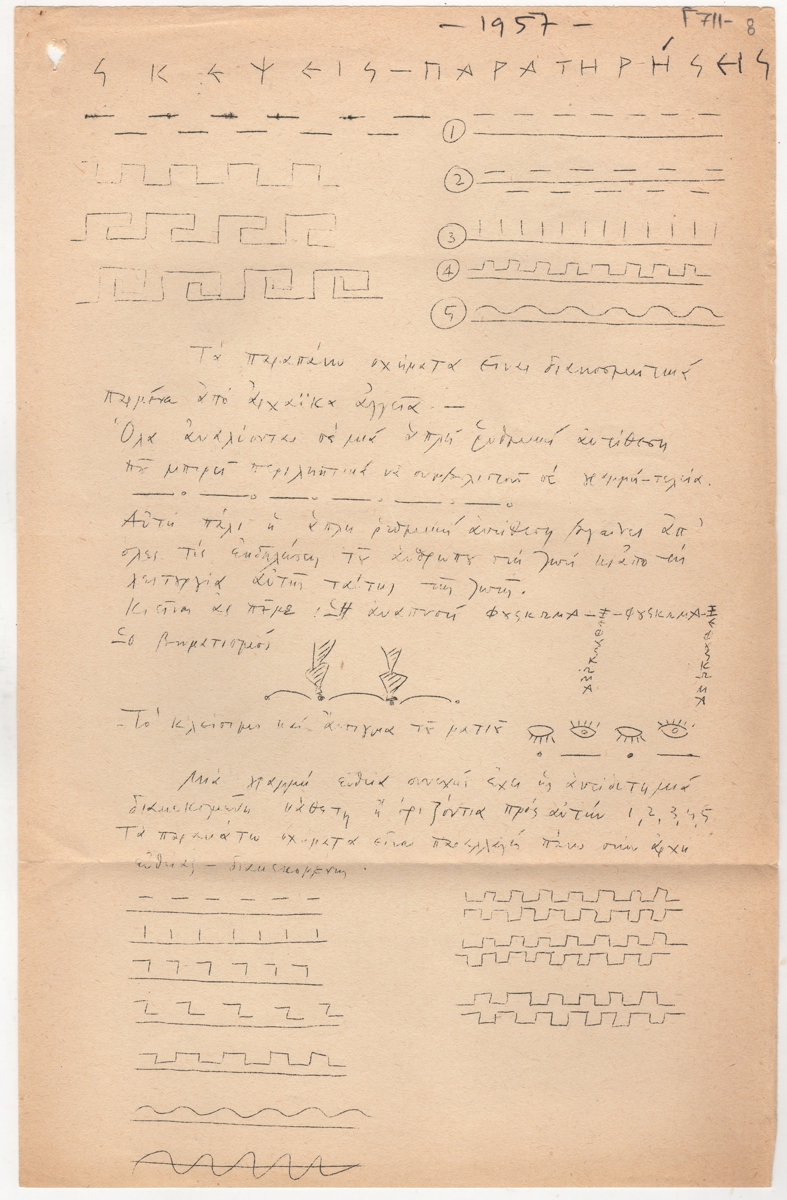 — 1957 —
Γ711- 8
ΣΚΕΨΕΙΣ — ΠΑΡΑΤΗΡΉΣΕΙΣ
1
2
3
4
5
Τὰ παραπάνω σχήματα εἶναι διακοσμητικά
παρμένα ἀπό ἀρχαϊκα ἀγγεῖα. —
Ὅλα ἀναλύονται σέ μιά ἁπλή ῥυθμική ἀντίθεση
πȣ μπορεῖ περιληπτικά νά συμβολιστεῖ σέ γραμμή-τελεία.
Αὐτή πάλι ἡ ἁπλή ρυθμική ἀντίθεση βγαίνει ἀπ'
ὅλες τίς ἐκδηλώσεις τȣ ἀνθρώπȣ στή ζωή κι ἀπο τή
λειτȣργία αὐτῆς ταύτης τῆς ζωῆς.
ἀναπνοή ΦΟΥΣΚΩΜΑ — ΞΕΦΟΥΣΚΩΜΑ
βηματισμός
— Τό κλείσιμο καί ἄνοιγμα τȣ ματιȣ
Μιά γραμμή εὐθεῖα συνεχής ἔχει ὡς ἀντίθετη μιά
διακεκομένη κάθετη ἤ ὁριζόντια πρός αὐτήν 1, 2, 3, 4, 5
Τά παρακάτω σχήματα εἶναι παραλλαγή πάνω στήν ἀρχή
εὐθείας — διακεκομμένης.